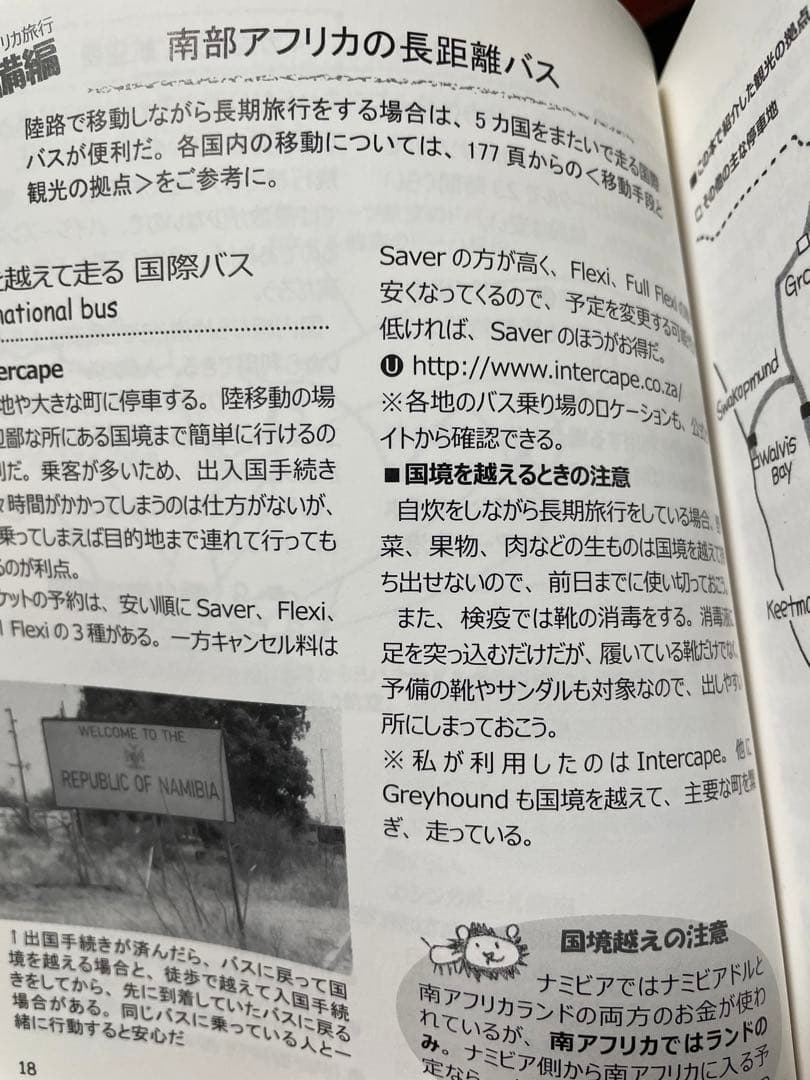 リカ旅行
備編
南部アフリカの長距離バス
陸路で移動しながら長期旅行をする場合は、5カ国をまたいで走る国際
バスが便利だ。各国内の移動については、177頁からの<移動手段と
観光の拠点>をご参考に。
を越えて走る 国際バス
national bus
ercape
地や大きな町に停車する。陸移動の場
辺鄙な所にある国境まで簡単に行けるの
利だ。乗客が多いため、出入国手続き
々時間がかかってしまうのは仕方がないが、
乗ってしまえば目的地まで連れて行っても
るのが利点。
ケットの予約は、安い順に Saver、Flexi、
l Flexi の3種がある。一方キャンセル料は
WELCOME TO THE
REPUBLIC OF NAMIBIA
1 出国手続きが済んだら、バスに戻って国
境を越える場合と、徒歩で越えて入国手続
きをしてから、先に到着していたバスに戻る
場合がある。同じバスに乗っている人と一
緒に行動すると安心だ
18
Saver の方が高く、Flexi、Full Flexi の
安くなってくるので、予定を変更する可能
低ければ、Saver のほうがお得だ。
U http://www.intercape.co.za/
※各地のバス乗り場のロケーションも、公式
イトから確認できる。
■国境を越えるときの注意
自炊をしながら長期旅行をしている場合、
菜、果物、肉などの生ものは国境を越えて持
ち出せないので、前日までに使い切っておこう。
また、検疫では靴の消毒をする。消毒液に
足を突っ込むだけだが、履いている靴だけでなく
予備の靴やサンダルも対象なので、出しやすい
所にしまっておこう。
※私が利用したのは Intercape。他に
Greyhound も国境を越えて、主要な町を繋
ぎ、走っている。
国境越えの注意
ナミビアではナミビアドルと
南アフリカランドの両方のお金が使わ
れているが、南アフリカではランドの
み。ナミビア側から南アフリカに入る予
定なら
■この本で紹介した観光の拠点
□その他の主な停車地
Gro
Swakopmund
Walvis
Bay
Keetm